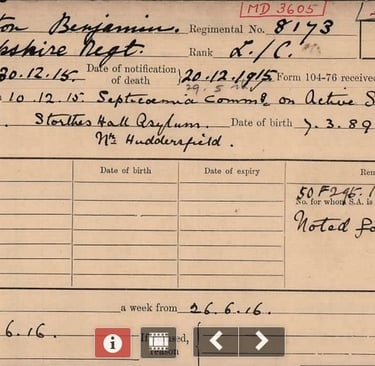 MD 3605
ton Benjamin. Regimental No. 8173
pshire Regt. Rank L/C.
30.12.15. Date of notification of death 20.12.1915 Form 104-76 received
10.12.15. Septicaemia Commd. on Active S
Storthes Hall Asylum. Date of birth 7.3.89
Nr. Huddersfield.
Date of birth Date of expiry Rem
50F295.1
No. for whom S.A. is
Noted fo
a week from 26.6.16.
6.16. If
reason